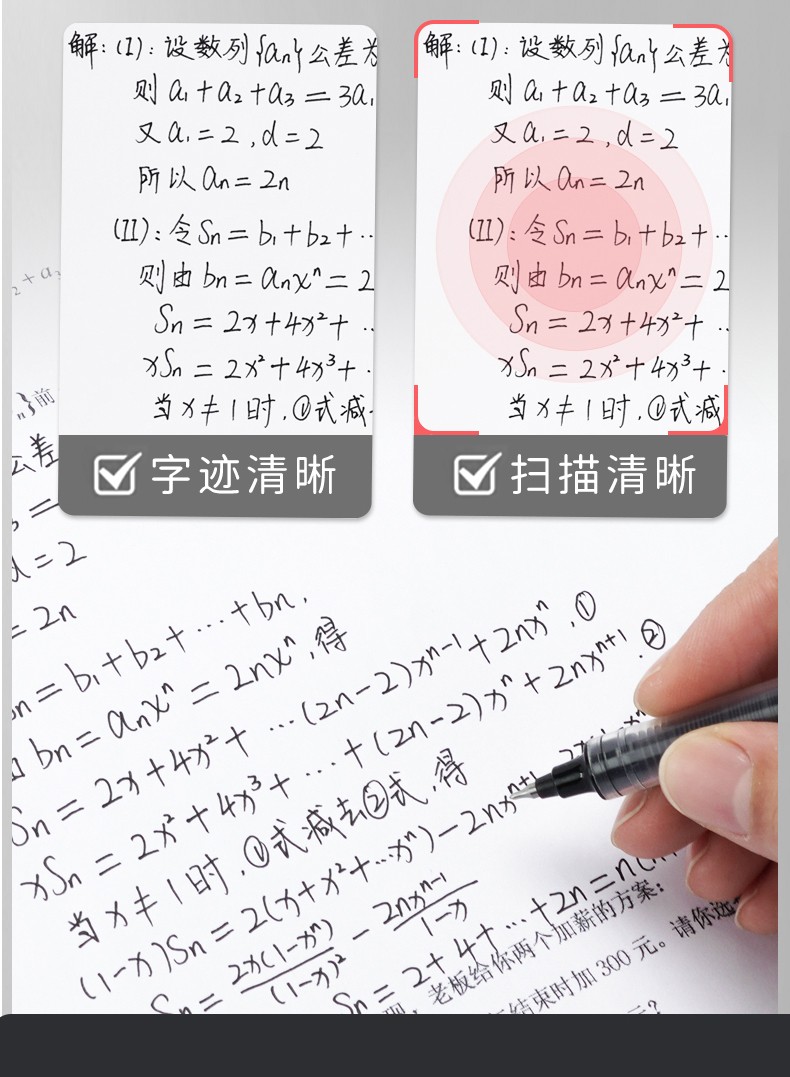 解:(I):设数列{an}公差为
则 a₁+a₂+a₃=3a₁
又 a₁=2,d=2
所以 an=2n
(II):令Sn=b₁+b₂+…
则由bn=anxⁿ=2
Sn=2x+4x²+…
xSn=2x²+4x³+…
当x≠1时,①式减
字迹清晰
解:(I):设数列{an}公差为
则 a₁+a₂+a₃=3a₁
又 a₁=2,d=2
所以 an=2n
(II):令Sn=b₁+b₂+…
则由bn=anxⁿ=2
Sn=2x+4x²+…
xSn=2x²+4x³+…
当x≠1时,①式减
扫描清晰
₂+a₃
n}前
公差
₃=
d=2
=2n
Sn=b₁+b₂+…+bn,
由bn=anxⁿ=2nxⁿ,得
Sn=2x+4x²+…(2n-2)xⁿ⁻¹+2nxⁿ,①
xSn=2x²+4x³+…+(2n-2)xⁿ+2nxⁿ⁺¹.②
当x≠1时,①式减去②式,得
(1-x)Sn=2(x+x²+…xⁿ)-2nxⁿ⁺¹
Sn=2x(1-xⁿ)/(1-x)²-2nxⁿ⁻¹/1-x
Sn=2+4+…+2n=n(n
老板给你两个加薪的方案:
结束时加300元。请你选
元?